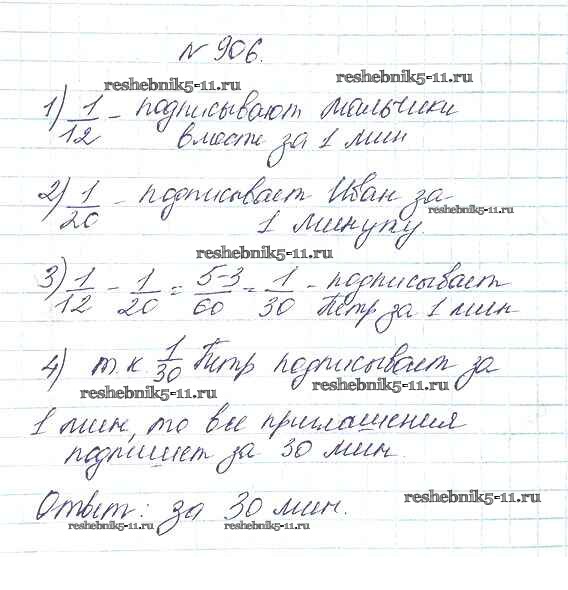 № 906.
reshebnik5-11.ru
reshebnik5-11.ru
1) 1/12 - подписывают мальчики
вместе за 1 мин
2) 1/20 - подписывает Иван за
reshebnik5-11.ru
1 минуту.
reshebnik5-11.ru
3) 1/12 - 1/20 = 5-3/60 = 1/30 - подписывает
Петр за 1 мин
4) т.к. 1/30 Петр подписывает за
reshebnik5-11.ru
reshebnik5-11.ru
1 мин, то все приглашения
подпишет за 30 мин.
reshebnik5-11.ru
Ответ: за 30 мин.
reshebnik5-11.ru
reshebnik5-11.ru